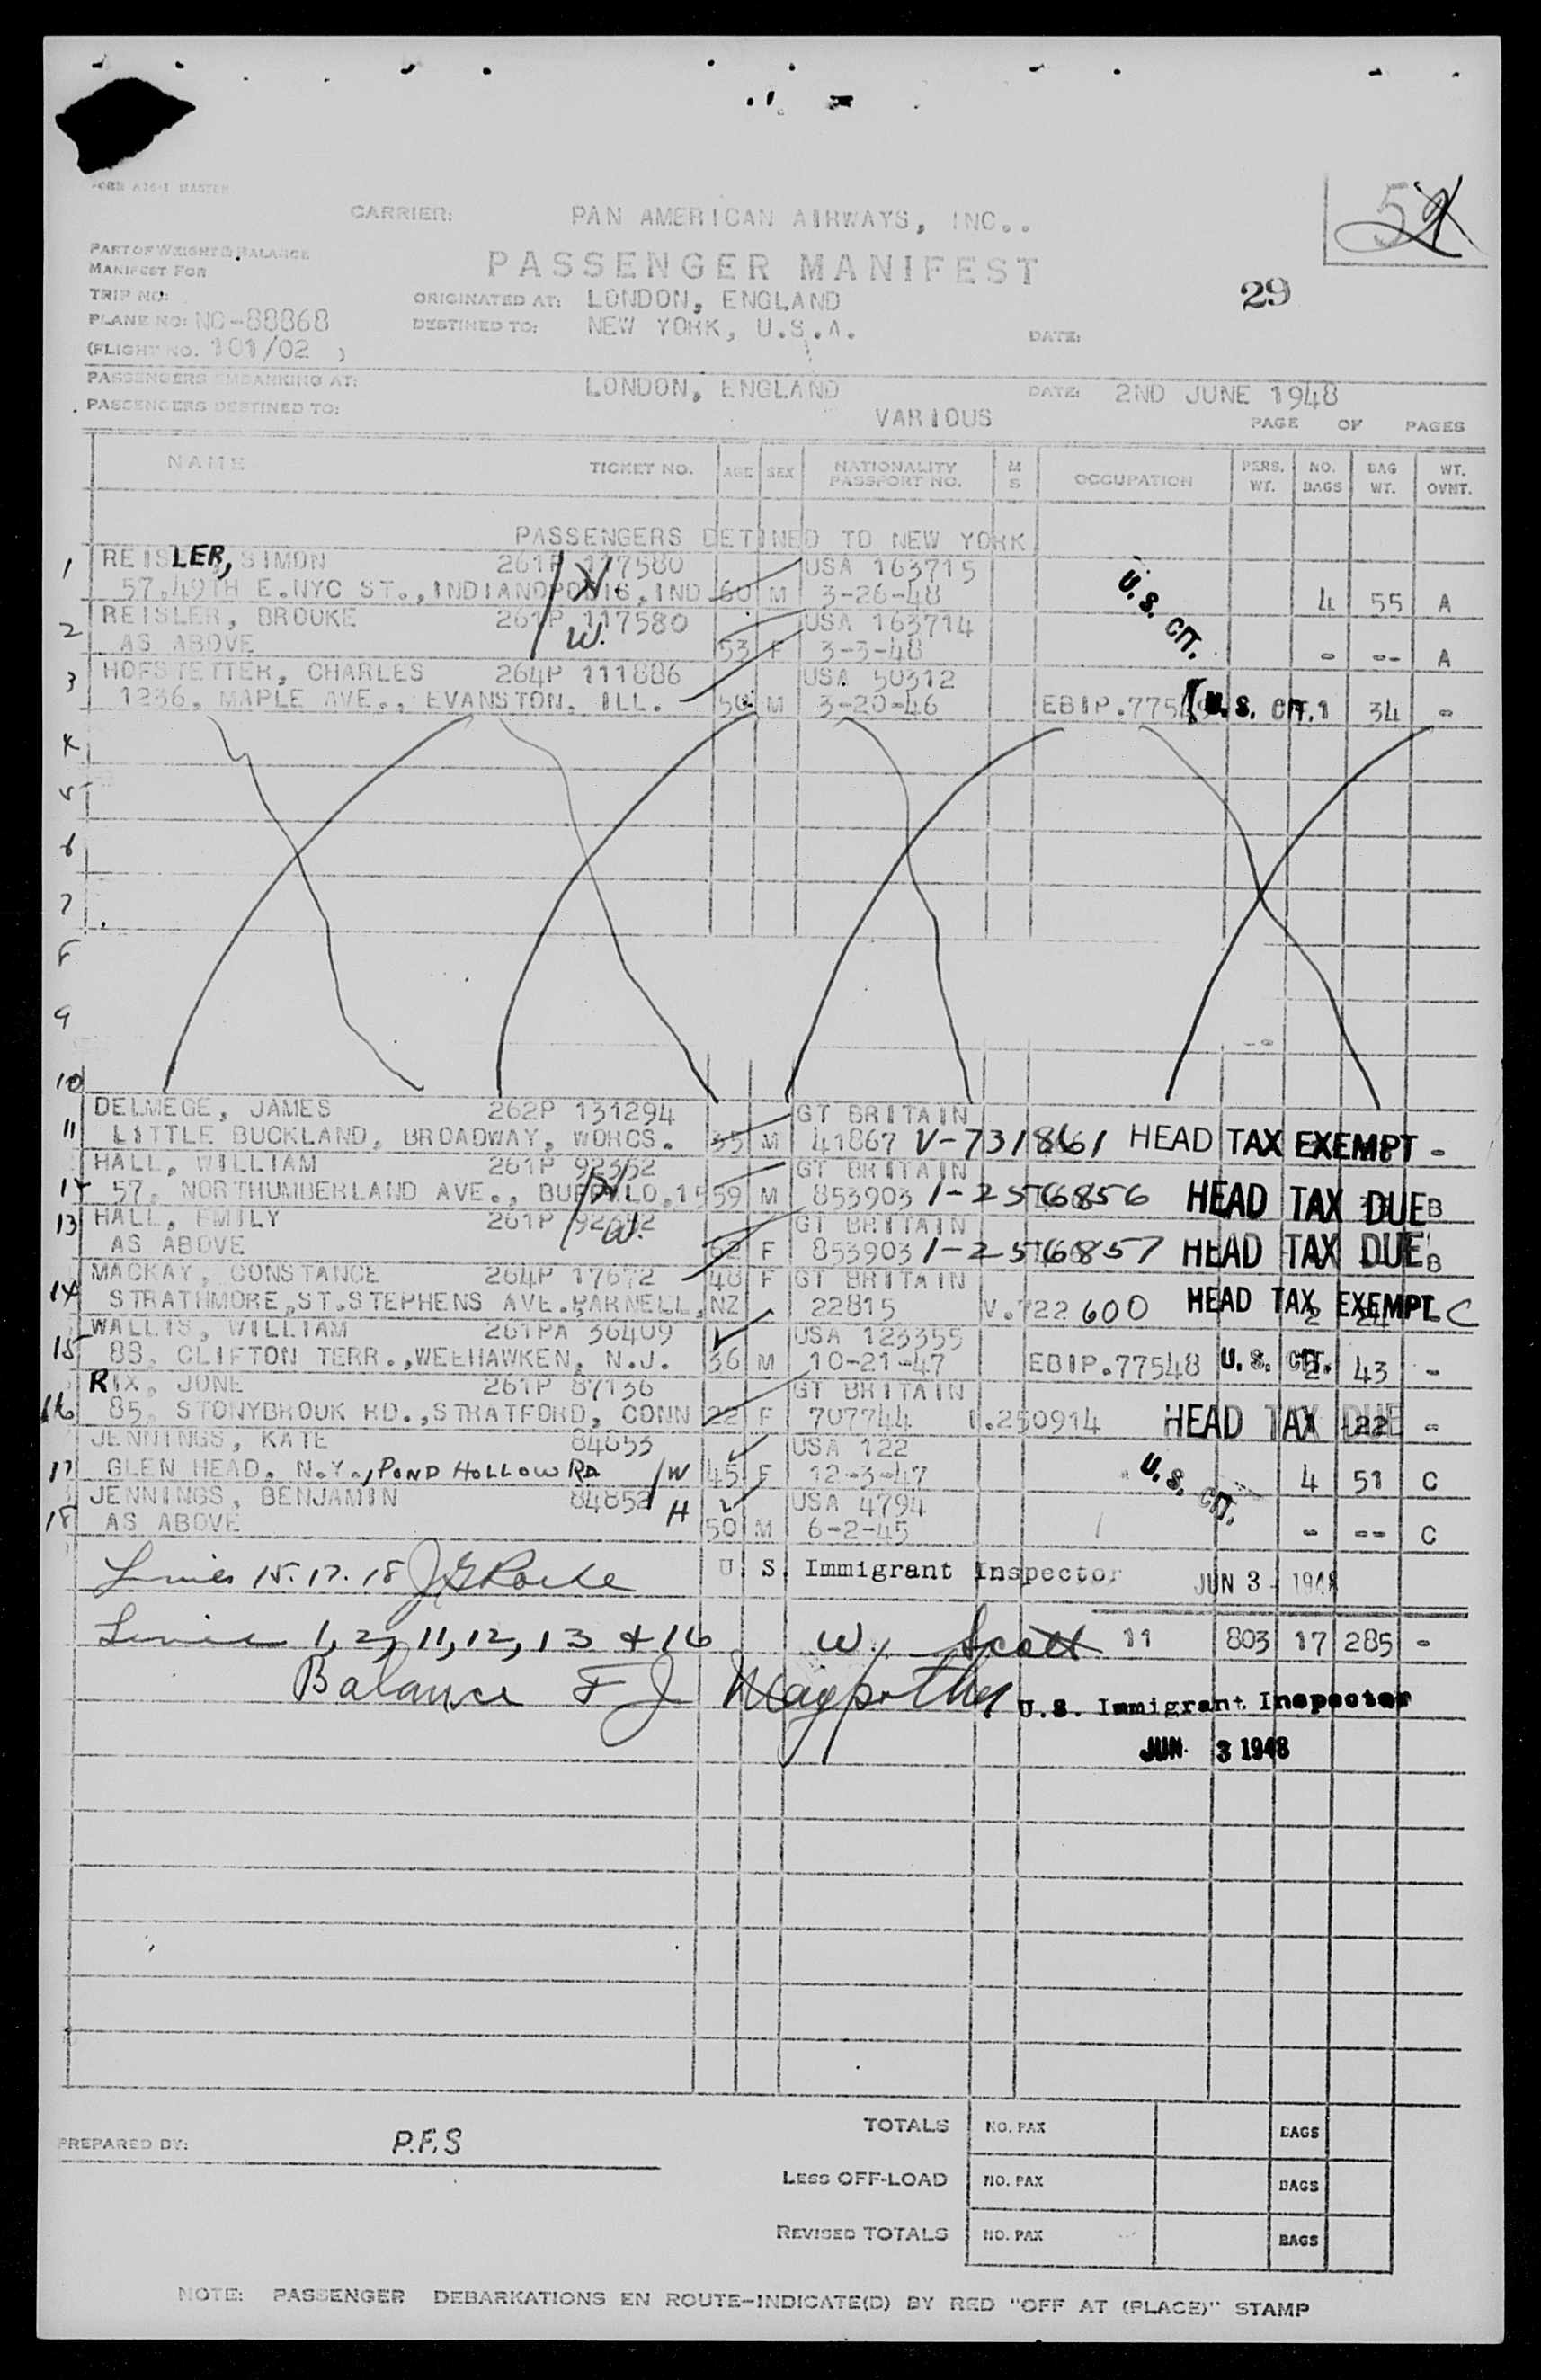 FORM A26-1 MASTER
CARRIER: PAN AMERICAN AIRWAYS, INC..
52
PART OF WEIGHT & BALANCE
MANIFEST FOR
PASSENGER MANIFEST
29
TRIP NO:
ORIGINATED AT: LONDON, ENGLAND
PLANE NO: NC-88868
DESTINED TO: NEW YORK, U.S.A.
DATE:
(FLIGHT NO. 101/02 )
PASSENGERS EMBARKING AT: LONDON, ENGLAND DATE: 2ND JUNE 1948
PASSENGERS DESTINED TO: VARIOUS PAGE OF PAGES
NAME TICKET NO. AGE SEX NATIONALITY PASSPORT NO. M S OCCUPATION PERS. WT. NO. BAGS BAG WT. WT. OVNT.
PASSENGERS DETINED TO NEW YORK
1 REISLER, SIMON 261P 117580 USA 163715
57.49TH E.NYC ST.,INDIANOPOLIS.IND 60 M 3-26-48 U.S. CIT. 4 55 A
2 REISLER, BROUKE 261P 117580 W. USA 163714
AS ABOVE 53 F 3-3-48 - -- A
3 HOFSTETTER, CHARLES 264P 111886 USA 50312
1236, MAPLE AVE., EVANSTON. ILL. M 3-20-46 EBIP.77549 U.S. CIT. 1 34 -
4
5
6
7
8
9
10
DELMEGE, JAMES 262P 131294 GT BRITAIN
11 LITTLE BUCKLAND, BROADWAY, WORCS. 35 M 41867 V-731861 HEAD TAX EXEMPT -
HALL, WILLIAM 261P GT BRITAIN
12 57, NORTHUMBERLAND AVE., BUFFALO, 59 M 853903 1-256856 HEAD TAX DUE B
13 HALL, EMILY 261P W. GT BRITAIN
AS ABOVE 52 F 853903 1-256857 HEAD TAX DUE B
MACKAY, CONSTANCE 264P 17672 48 F GT BRITAIN
14 STRATHMORE,ST.STEPHENS AVE.PARNELL,NZ 22815 V.722600 HEAD TAX EXEMPT C
WALLIS, WILLIAM 261PA 36409 USA 123355
15 88, CLIFTON TERR.,WEEHAWKEN, N.J. 36 M 10-21-47 EBIP.77548 U.S. CIT. 2 43 -
RIX, JUNE 261P 87136 GT BRITAIN
16 85, STONYBROUK RD.,STRATFORD, CONN 22 F 707744 .250914 HEAD TAX DUE 22 -
JENNINGS, KATE 84853 USA 122
17 GLEN HEAD, N.Y., POND HOLLOW RD W 45 F 12-3-47 U.S. CIT. 4 51 C
JENNINGS, BENJAMIN 84852 H USA 4794
18 AS ABOVE 50 M 6-2-45 - -- C
Lines 15.17.18 U S. Immigrant Inspector JUN 3 - 1948
Lines 1, 2, 11, 12, 13 & 16 W. Scott 11 803 17 285 -
Balance F J U.S. Immigrant Inspector
JUN 3 1948
PREPARED BY: P.F.S
TOTALS NO. PAX BAGS
LESS OFF-LOAD NO. PAX BAGS
REVISED TOTALS NO. PAX BAGS
NOTE: PASSENGER DEBARKATIONS EN ROUTE-INDICATE(D) BY RED "OFF AT (PLACE)" STAMP